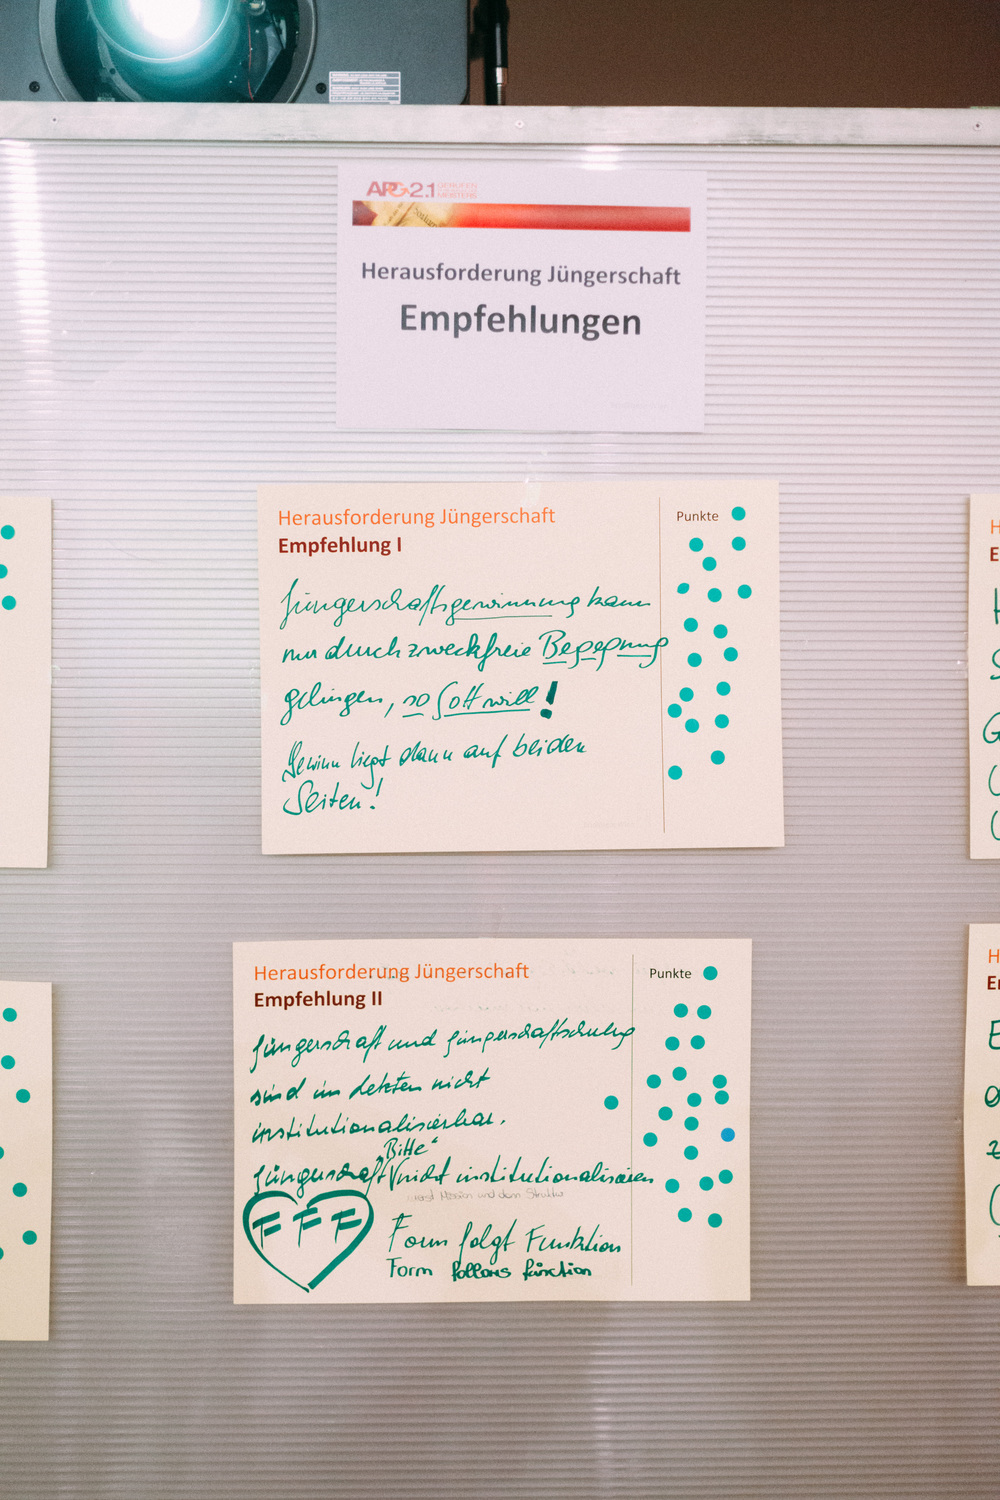 APG2.1
Herausforderung Jüngerschaft
Empfehlungen
Herausforderung Jüngerschaft
Empfehlung I
Punkte
Jüngerschaftsgewinnung kann
nur durch zweckfreie Begegnung
gelingen, so Gott will!
Gewinn liegt dann auf beiden
Seiten!
Herausforderung Jüngerschaft
Empfehlung II
Punkte
Jüngerschaft und Jüngerschaftschulung
sind im Letzten nicht
institutionalisierbar.
"Bitte"
Jüngerschaft nicht institutionalisieren
erst Mission und dann Struktur
FFF
Form folgt Funktion
Form follows function
H
E
H
S
G
H
E
E